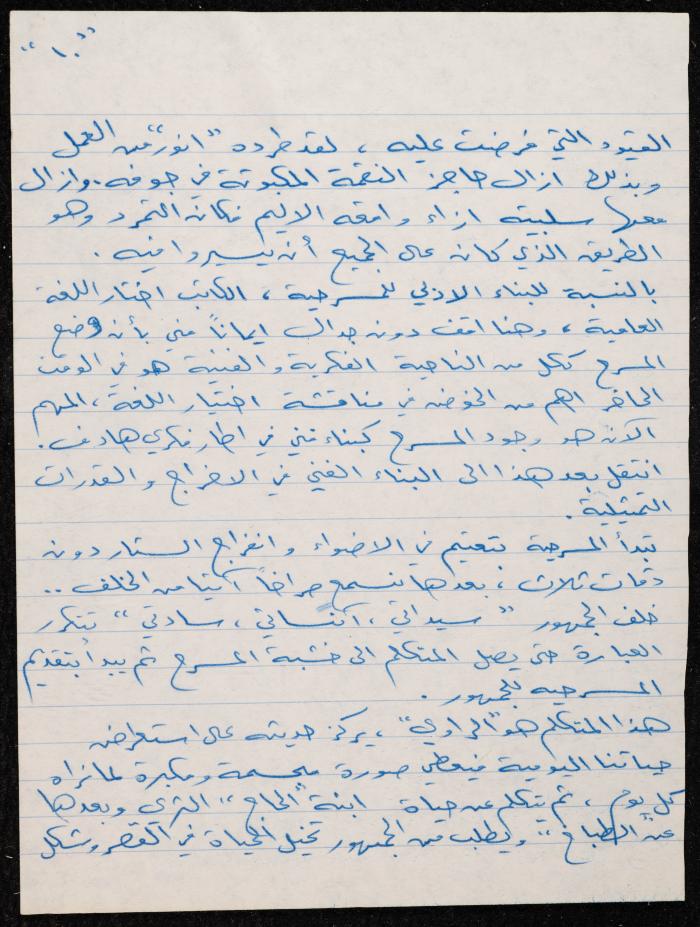 "١٠"
القيود التي فرضت عليه ، لقد طرده "انور" من العمل
وبذلك ازال حاجز النقمة المكبوتة في جوفه . وازال
معها سلبيته ازاء واقعه الاليم فكان التمرد وهو
الطريق الذي كان على الجميع أن يسيروا فيه .
بالنسبة للبناء الادبي للمسرحية ، الكاتب اختار اللغة
العامية ، وهنا اقف دون جدال ايماناً مني بأن وضع
المسرح ككل من الناحية الفكرية والفنية هو في الوقت
الحاضر اهم من الخوض في مناقشة اختيار اللغة ، المهم
الآن هو وجود المسرح كبناء فني في اطار فكري هادف .
انتقل بعد هذا الى البناء الفني في الاخراج والقدرات
التمثيلية .
تبدأ المسرحية بتعتيم في الاضواء وانفراج الستار دون
دقات ثلاث ، بعدها نسمع صراخاً آتيا من الخلف ..
خلف الجمهور "سيداتي ، آنساتي ، سادتي" تتكرر
العبارة حتى يصل المتكلم الى خشبة المسرح ثم يبدأ بتقديم
المسرحيه للجمهور .
هذا المتكلم هو "الراوي" ، يركز حديثه على استعراض
حياتنا اليومية فيعطي صورة مجسمة ومكبرة لما نراه
كل يوم ، ثم يتكلم عن حياة ابنة "الحاج" الثري وبعدها
عن "الطباخ" ويطلب من الجمهور تخيل الحياة في القصر وشكل